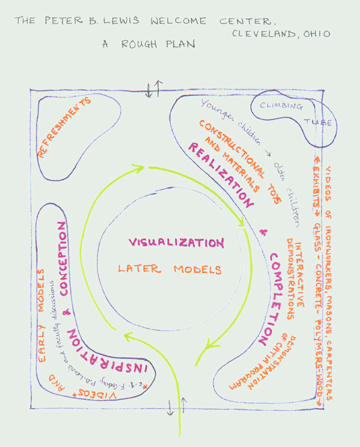 THE PETER B. LEWIS WELCOME CENTER,
CLEVELAND, OHIO
A ROUGH PLAN
REFRESHMENTS
Younger children → older children
CLIMBING
TUBE
CONSTRUCTIONAL TOYS
AND MATERIALS
REALIZATION & COMPLETION
INTERACTIVE
DEMONSTRATIONS
DEMONSTRATION
OF CATIA PROGRAM
VIDEOS OF IRONWORKERS, MASONS, CARPENTERS
*EXHIBITS* GLASS - CONCRETE - POLYMERS - WOOD
VISUALIZATION
LATER MODELS
INSPIRATION & CONCEPTION
EARLY MODELS
AND
VIDEOS*
and faculty discussions